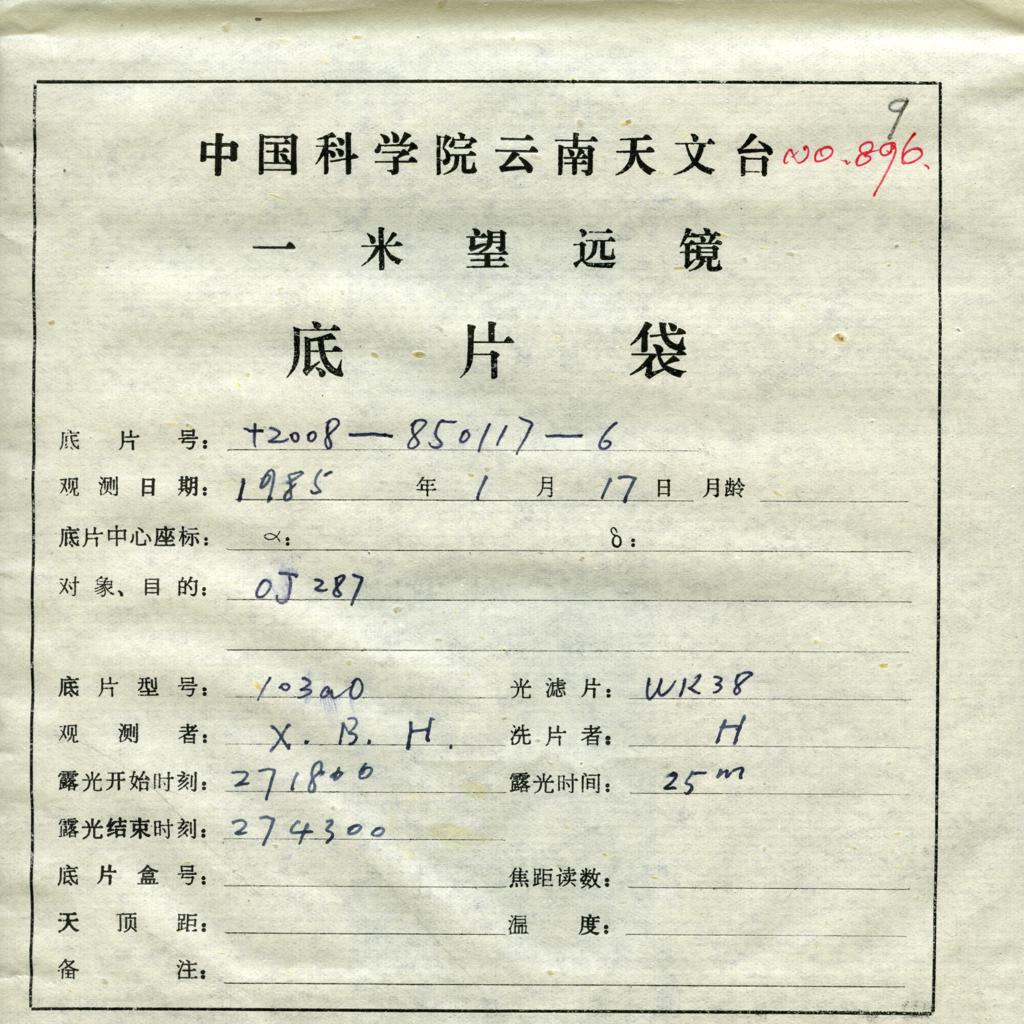 9
中国科学院云南天文台 NO.896.
一米望远镜
底片袋
底片号: +2008—850117—6
观测日期: 1985 年 1 月 17 日 月龄
底片中心座标: α: δ:
对象、目的: OJ 287
底片型号: 103aO 光滤片: WR38
观测者: X. B. H. 洗片者: H
露光开始时刻: 271800 露光时间: 25m
露光结束时刻: 274300
底片盒号: 焦距读数:
天顶距: 温度:
备注: